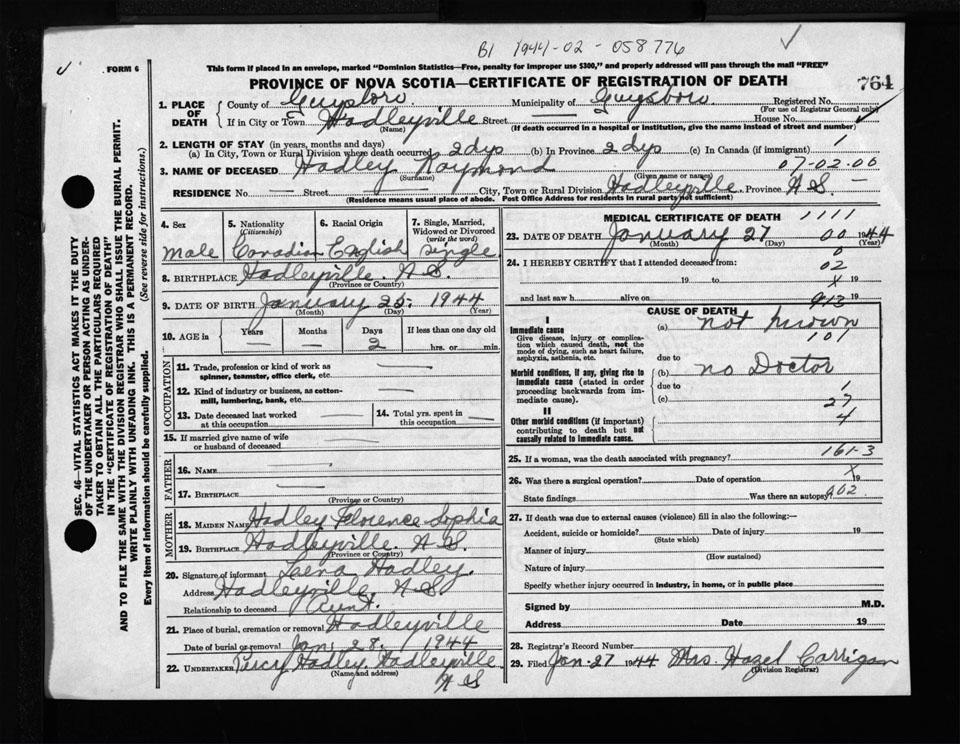 B1 1944-02-058776
FORM 6
This form if placed in an envelope, marked "Dominion Statistics—Free, penalty for improper use $300," and properly addressed will pass through the mail "FREE"
PROVINCE OF NOVA SCOTIA—CERTIFICATE OF REGISTRATION OF DEATH
764
SEC. 46—VITAL STATISTICS ACT MAKES IT THE DUTY
OF THE UNDERTAKER OR PERSON ACTING AS UNDER-
TAKER TO OBTAIN ALL THE PARTICULARS REQUIRED
IN THE "CERTIFICATE OF REGISTRATION OF DEATH"
AND TO FILE THE SAME WITH THE DIVISION REGISTRAR WHO SHALL ISSUE THE BURIAL PERMIT.
WRITE PLAINLY WITH UNFADING INK. THIS IS A PERMANENT RECORD.
Every item of information should be carefully supplied. (See reverse side for instructions.)
1. PLACE OF DEATH
County of Guysboro Municipality of Guysboro Registered No.
(For use of Registrar General only)
If in City or Town Hadleyville Street — House No.
(Name) (If death occurred in a hospital or institution, give the name instead of street and number)
2. LENGTH OF STAY (in years, months and days) 1
(a) In City, Town or Rural Division where death occurred 2 dys (b) In Province 2 dys (c) In Canada (if immigrant)
07-02.00
3. NAME OF DECEASED Hadley Raymond
(Surname) (Given name or names)
RESIDENCE No. — Street — City, Town or Rural Division Hadleyville Province N.S. —
(Residence means usual place of abode. Post Office Address for residents in rural parts not sufficient)
4. Sex 5. Nationality (Citizenship) 6. Racial Origin 7. Single, Married, Widowed or Divorced (write the word)
male Canadian English single.
8. BIRTHPLACE Hadleyville. N.S.
(Province or Country)
9. DATE OF BIRTH January 25. 1944
(Month) (Day) (Year)
10. AGE in Years Months Days If less than one day old
— — 2 hrs. or min.
OCCUPATION
11. Trade, profession or kind of work as
spinner, teamster, office clerk, etc. —
12. Kind of industry or business, as cotton-
mill, lumbering, bank, etc. —
13. Date deceased last worked
at this occupation —
14. Total yrs. spent in
this occupation —
15. If married give name of wife
or husband of deceased
FATHER
16. NAME —
17. BIRTHPLACE —
(Province or Country)
MOTHER
18. MAIDEN NAME Hadley Florence Sophia
19. BIRTHPLACE Hadleyville. N.S.
(Province or Country)
20. Signature of informant Lena Hadley.
Address Hadleyville N S
Relationship to deceased Aunt.
21. Place of burial, cremation or removal Hadleyville
Date of burial or removal Jan. 28. 1944
22. UNDERTAKER Percy Hadley. Hadleyville
(Name and address)
N S
MEDICAL CERTIFICATE OF DEATH 1111
23. DATE OF DEATH January 27 00 1944
(Month) (Day) (Year)
0
24. I HEREBY CERTIFY that I attended deceased from:
02
19 to X 19
and last saw h alive on 913 19
CAUSE OF DEATH
I
Immediate cause
Give disease, injury or complica-
tion which caused death, not the
mode of dying, such as heart failure,
asphyxia, asthenia, etc.
(a) not known
101
due to
Morbid conditions, if any, giving rise to
immediate cause (stated in order
proceeding backwards from im-
mediate cause).
(b) no Doctor
due to 1
(c) 27
II
4
Other morbid conditions (if important)
contributing to death but not
causally related to immediate cause.
25. If a woman, was the death associated with pregnancy? 161-3
X
26. Was there a surgical operation? Date of operation 19
State findings Was there an autopsy? 902
27. If death was due to external causes (violence) fill in also the following:—
Accident, suicide or homicide? Date of injury 19
(State which)
Manner of injury
(How sustained)
Nature of injury
Specify whether injury occurred in industry, in home, or in public place
Signed by M.D.
Address Date 19
28. Registrar's Record Number
29. Filed Jan-27 1944 Mrs. Hazel Carrigan
(Division Registrar)